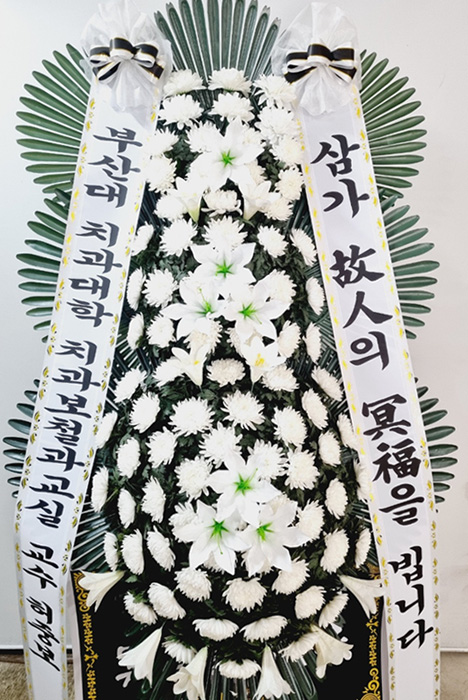 부산대 치과대학 치과보철과교실 교수
삼가 故人의 冥福을 빕니다